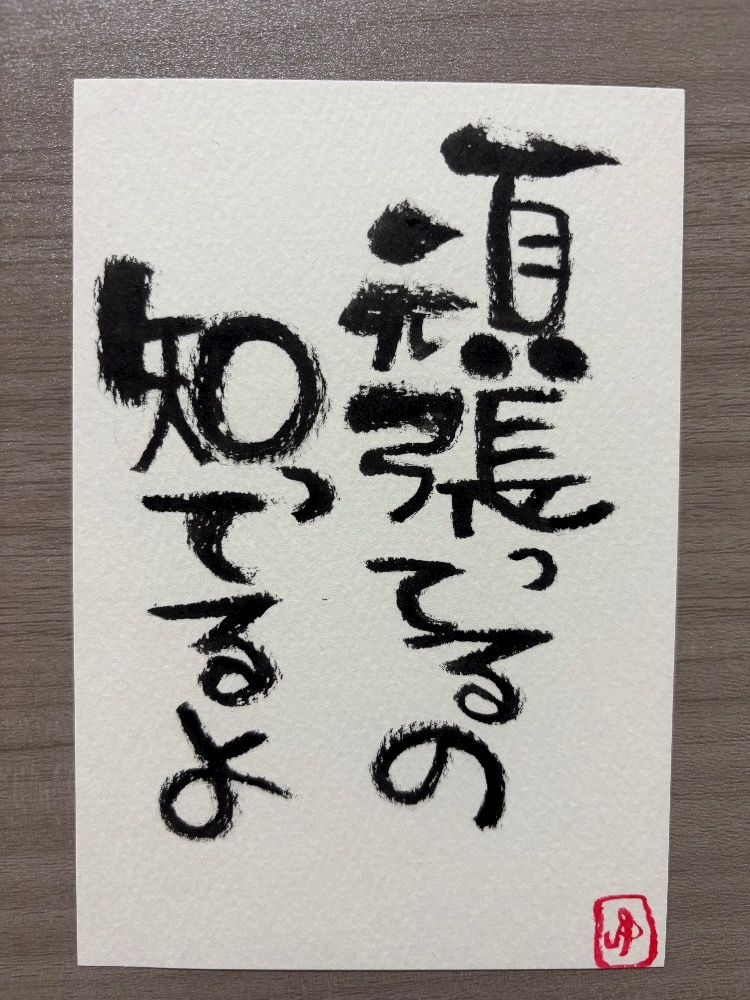 頑張ってるの
知ってるよ
ゆ